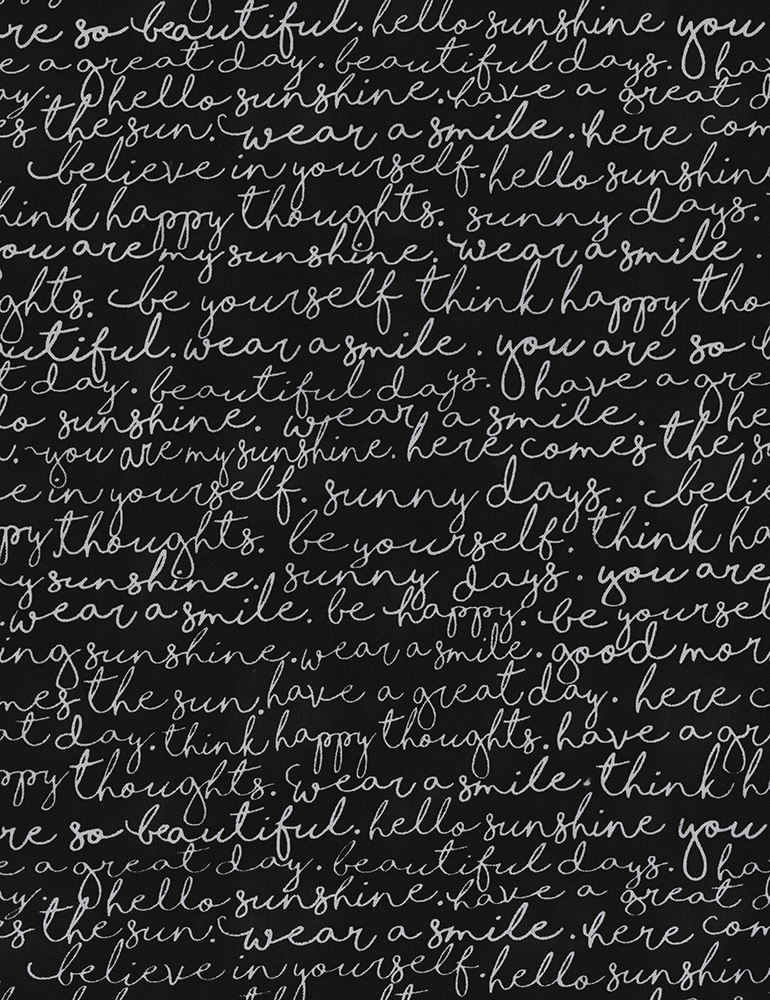 re so beautiful. hello sunshine you
e a great day. beautiful days. hav
ay. hello sunshine. have a great d
es the sun. wear a smile. here com
believe in yourself. hello sunshin
hink happy thoughts. sunny days.
ou are my sunshine. wear a smile.
ghts. be yourself think happy tho
utiful. wear a smile. you are so b
t day. beautiful days. have a grea
lo sunshine. wear a smile. he
. you are my sunshine. here comes the su
e in yourself. sunny days. belie
py thoughts. be yourself. think ha
y sunshine. sunny days. you are
. wear a smile. be happy. be yoursel
ing sunshine. wear a smile. good mor
mes the sun. have a great day. here c
at day. think happy thoughts. have a gr
ppy thoughts. wear a smile. think h
re so beautiful. hello sunshine you
e a great day. beautiful days. ha
ay. hello sunshine. have a great d
s the sun. wear a smile. here com
believe in yourself. hello sunshin